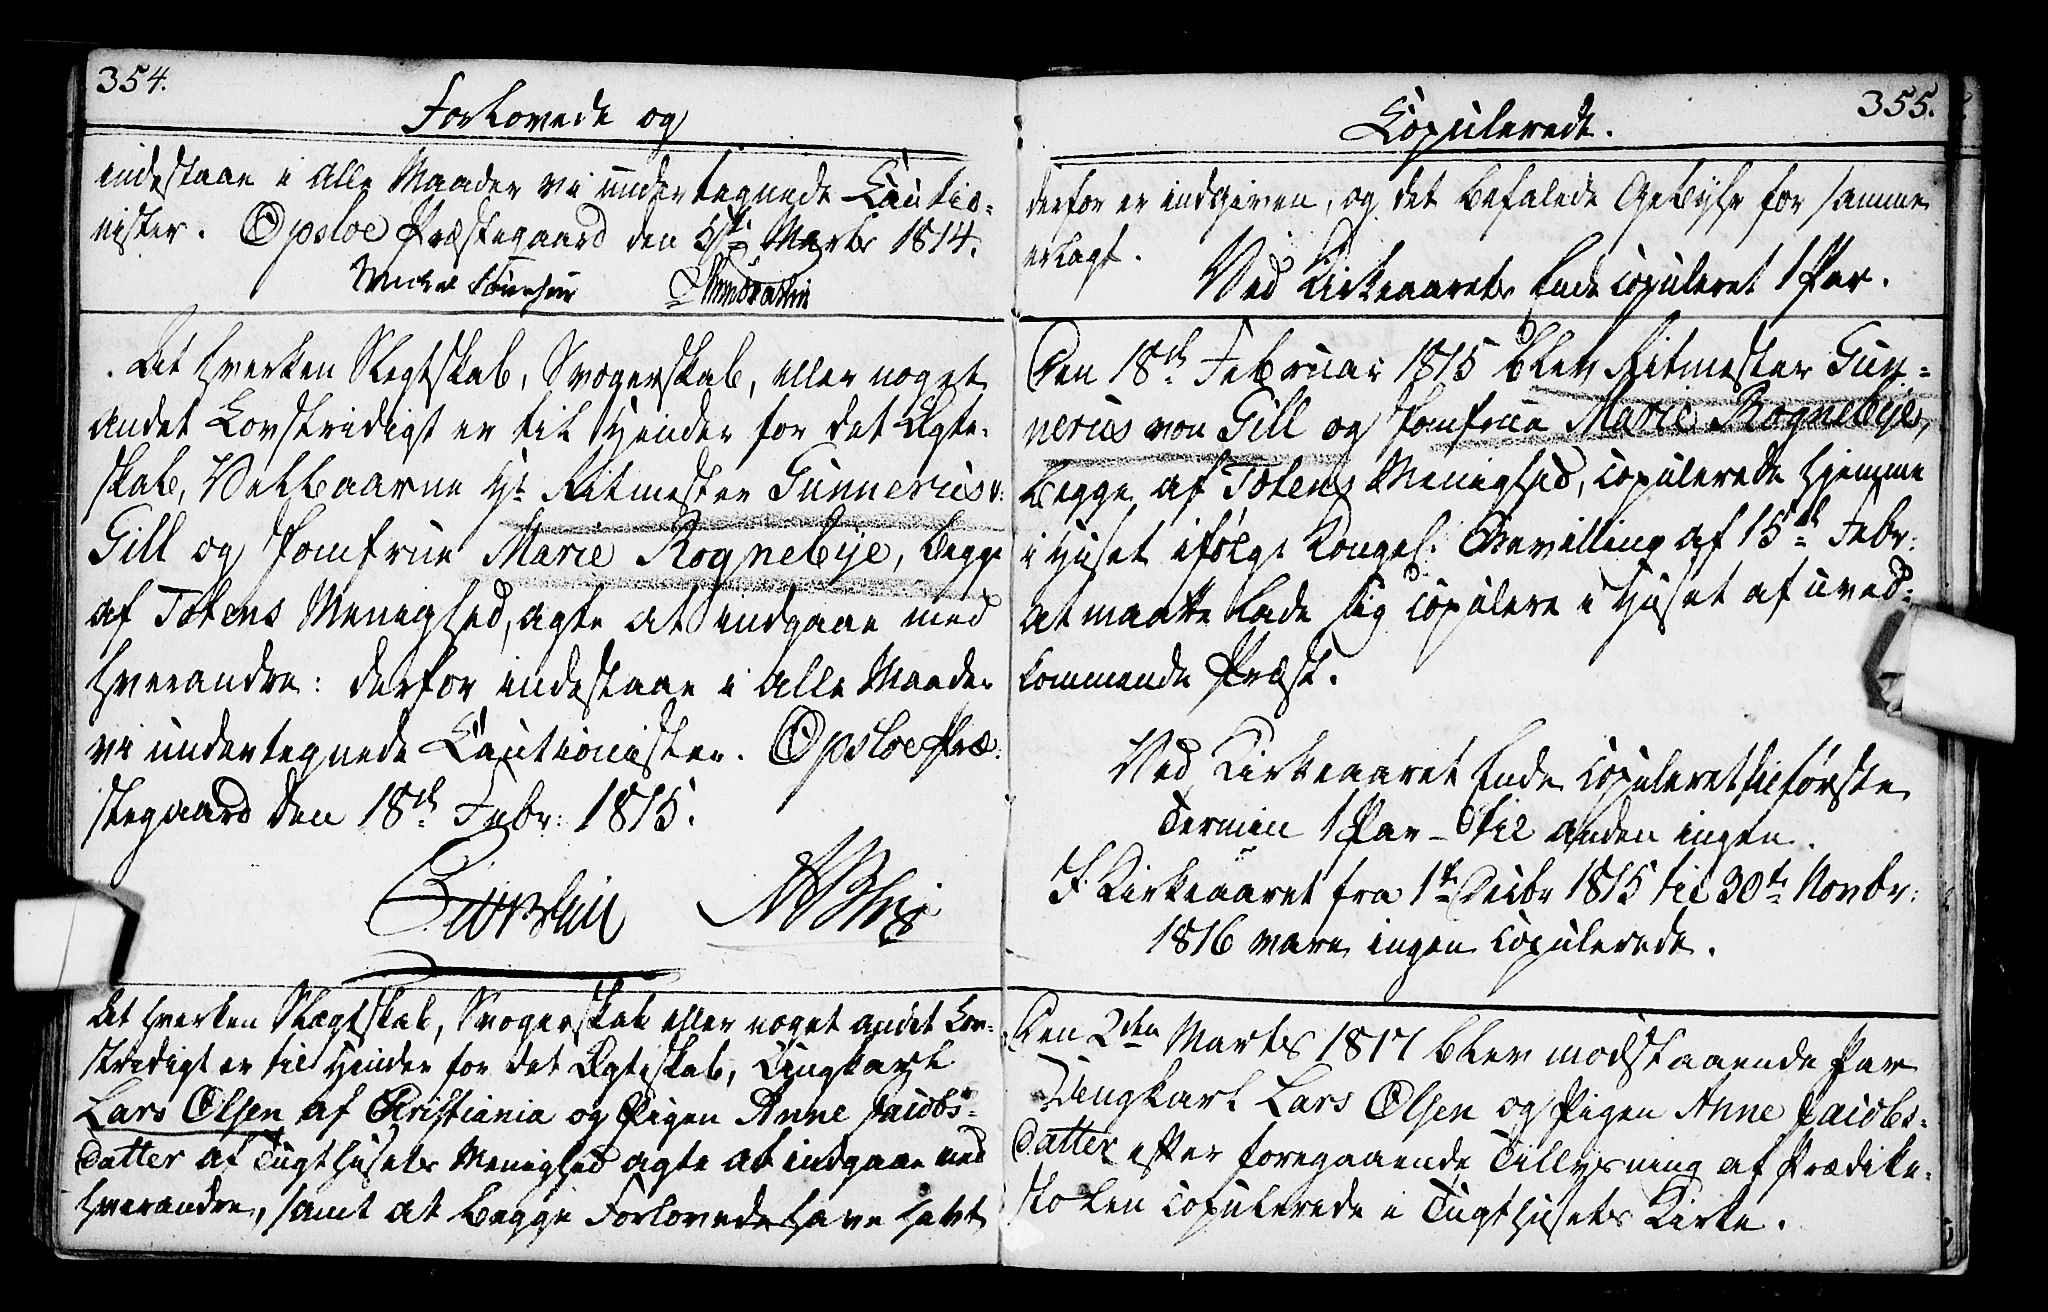 354.
Forlovede og
indestaae i alle Maader vi undertegnede Cautio-
nister. Opsloe Præstegaard den 5te Marts 1814.
At hverken Slegtskab, Svogerskab, eller noget
andet Lovstridigt er til Hinder for det Ægte-
skab, Velbaarne Hr Ritmester Gunnerius v:
Gill og Jomfrue Marie Rognebye, begge
af Totens Menighed, agte at indgaae med
hverandre: derfor indestaae i alle Maader
vi undertegnede Cautionister. Opsloe Præ-
stegaard den 18de Febr: 1815.
At hverken Slægtskab, Svogerskab eller noget andet Lov-
stridigt er til Hinder for det Ægteskab, Ungkarl
Lars Olsen af Christiania og Pigen Anne Jacobs-
datter af Tugthusets Menighed agte at indgaae med
hverandre, samt at begge Forlovede have havt
355.
Copulerede.
derfor er indgiven, og det befalede Gebyhr for samme
erlagt.
Ved Kirkeaarets Ende copuleret 1 Par.
Den 18de Februar 1815 blev Ritmester Gun-
nerius von Gill og Jomfrue Marie Rognebye,
begge af Totens Menighed, copulerede hjemme
i Huset ifølge Kongel. Bevilling af 15de Febr:
at maatte lade sig copulere i Huset af uved-
kommende Præst.
Ved Kirkeaaret Ende copuleret til første
Termin 1 Par - til anden ingen.
I Kirkeaaret fra 1te Decbr 1815 til 30te Novbr:
1816 vare ingen copulerede.
Den 2den Marts 1817 blev modstaaende Par
Ungkarl Lars Olsen og Pigen Anne Jacobs-
datter efter foregaaende Tillysning af Prædike-
stolen copulerede i Tugthusets Kirke.